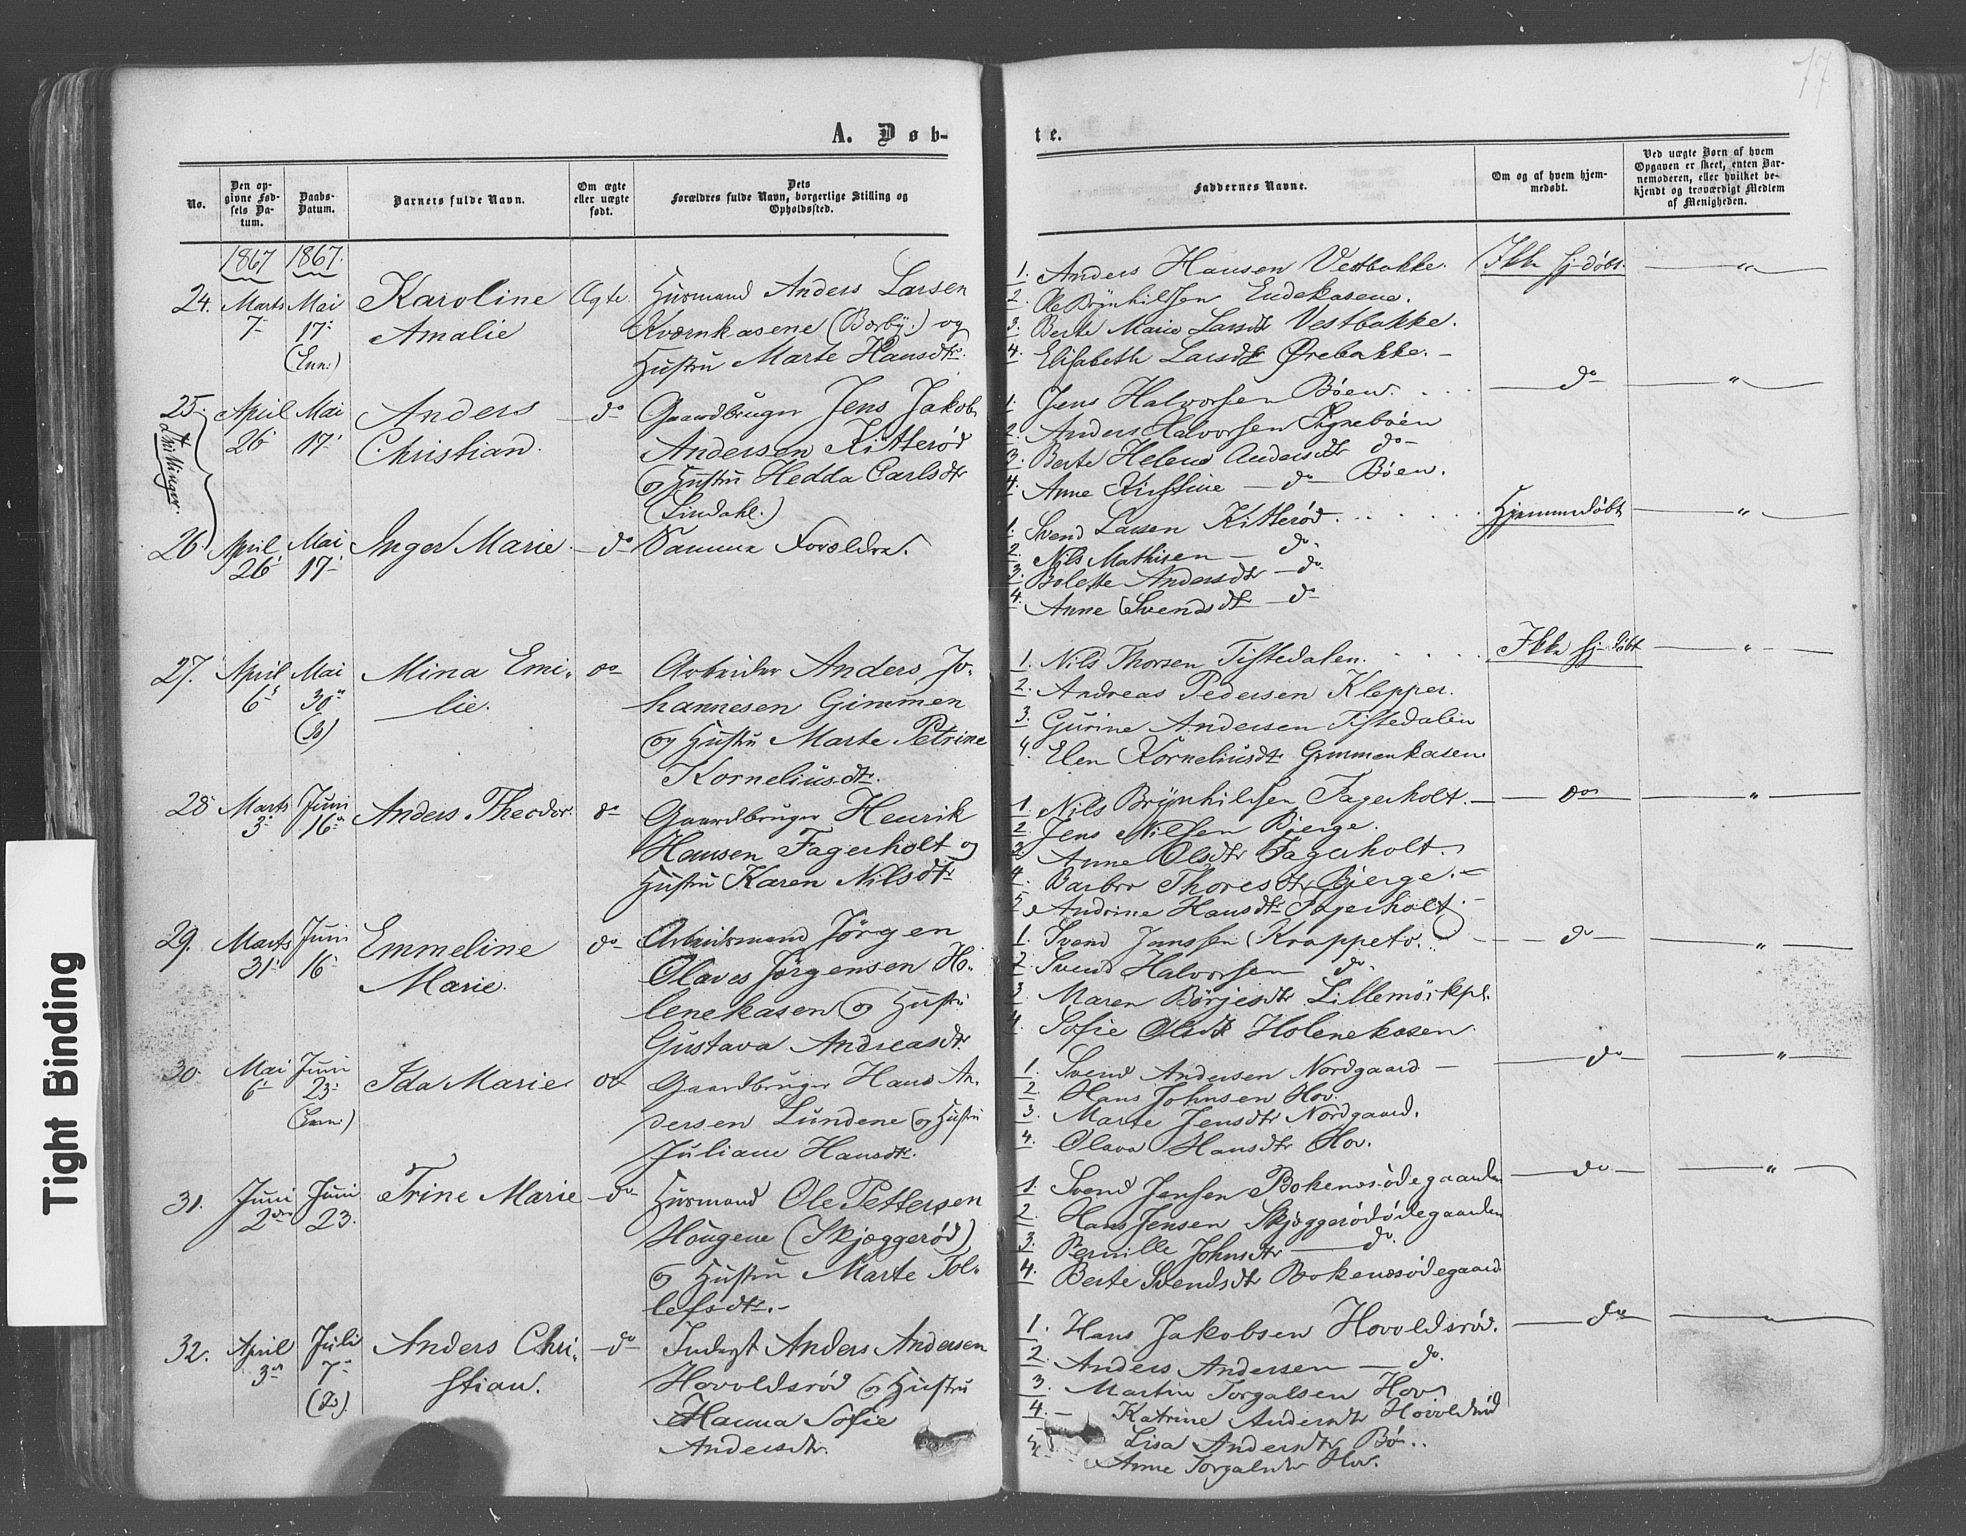 77
A. Døb-
te.
No.
Den op-
givne Fød-
sels Da-
tum.
Daabs-
Datum.
Barnets fulde Navn.
Om ægte
eller uægte
født.
Dets
Forældres fulde Navn, borgerlige Stilling og
Opholdssted.
Faddernes Navne.
Om og af hvem hjem-
medøbt.
Ved uægte Børn af hvem
Opgaven er skeet, enten Bar-
nemoderen, eller hvilket be-
kjendt og troværdigt Medlem
af Menigheden.
1867 1867.
24. Marts 7- Mai 17- (Enn.)
Karoline
Amalie
Ægte.
Husmand Anders Larsen
Kværnkasene (Borby.) og
Hustru Marte Hansdtr.
1. Anders Hansen Vestbakke.
2. Ole Brynhilsen Endekasene.
3. Berte Marie Larsdtr Vestbakke.
4. Elisabeth Larsdtr Ørebakke.-
Ikke hj-døbt. — " —
25. April 26- Mai 17-
Anders
Christian.
do
Gaardbruger Jens Jakob
Andersen Kitterød
og Hustru Hedda Carlsdtr
(Lindahl.)
1. Jens Halvorsen Bøen.
2. Anders Halvorsen Signebøen
3. Berte Helene Andersdtr do-
4. Anne Kirstine — do- Bøen.
do — " —
Tvillinger.
26 April 26- Mai 17-
Inger Marie.
do
Samme Forældre.
1. Svend Larsen Kitterød.
2. Nils Mathisen — do.
3. Bolette Andersdtr — do
4. Anne Svendsdtr — do
Hjemmedøbt — " —
27. April 6- Mai 30- (do)
Mina Emi-
lie.
do
Arbeider Anders Jo-
hannesen Gimmen
og Hustru Marte Petrine
Korneliusdtr.
1. Nils Thorsen Tistedalen.
2. Andreas Pedersen Klepper.
3. Gurine Andersen Tistedalen
4. Elen Korneliusdtr Gimmenkasen
Ikke hj-døbt — " —
28 Marts 3- Juni 16-
Anders Theodor.
do
Gaardbruger Henrik
Hansen Fagerholt og
Hustru Karen Nilsdtr
1. Nils Brynhilsen Fagerholt.
2. Jens Nilsen Bjerge.
3. Anne Olsdtr Fagerholt.
4. Barbro Thoresdtr Bjerge.
5. Andrine Hansdtr Fagerholt
do — " —
29. Marts 31- Juni 16-
Emmeline
Marie.
do
Arbeidsmand Jørgen
Olaves Jørgensen Ho-
lenekasen og Hustru
Gustava Andreasdtr.
1. Svend Jonssen Krappeto.
2. Svend Halvorsen do.
3. Maren Børjesdtr Lillemoskpl.
4. Sofie Olsdtr Holenekasen.
do — " —
30. Mai 6- Juni 23- (Enn.)
Ida Marie.
do
Gaardbruger Hans An-
dersen Lundene og Hustru
Juliane Hansdtr.
1. Svend Andersen Nordgaard
2. Hans Johnsen Hov.
3. Marte Jensdtr Nordgaard.
4. Olava Hansdtr Hov.
do — " —
31. Juni 2den Juni 23.
Trine Marie
do
Husmand Ole Pettersen
Hougene (Skjæggerød)
og Hustru Marte Tol-
lefsdtr.-
1. Svend Jensen Bokenesødegaarden
2. Hans Jensen Skjæggerødødegaarden
3. Pernille Johnsdtr — do.
4. Berte Svendsdtr Bokenesødegaard
do — " —
32. April 3- Juli 7- (do).
Anders Chri-
stian.
do
Inderst Anders Andersen
Hovoldsrød og Hustru
Hanna Sofie
Andersdtr.
1. Hans Jakobsen Hovoldsrød.
2. Anders Andersen — do.
3. Martin Torgalsen Hov
4. - Katrine Andersdtr Hovoldsrød
5. Lisa Andersdtr Bø..
Anne Torgalsdtr Hov.
do
Tight Binding